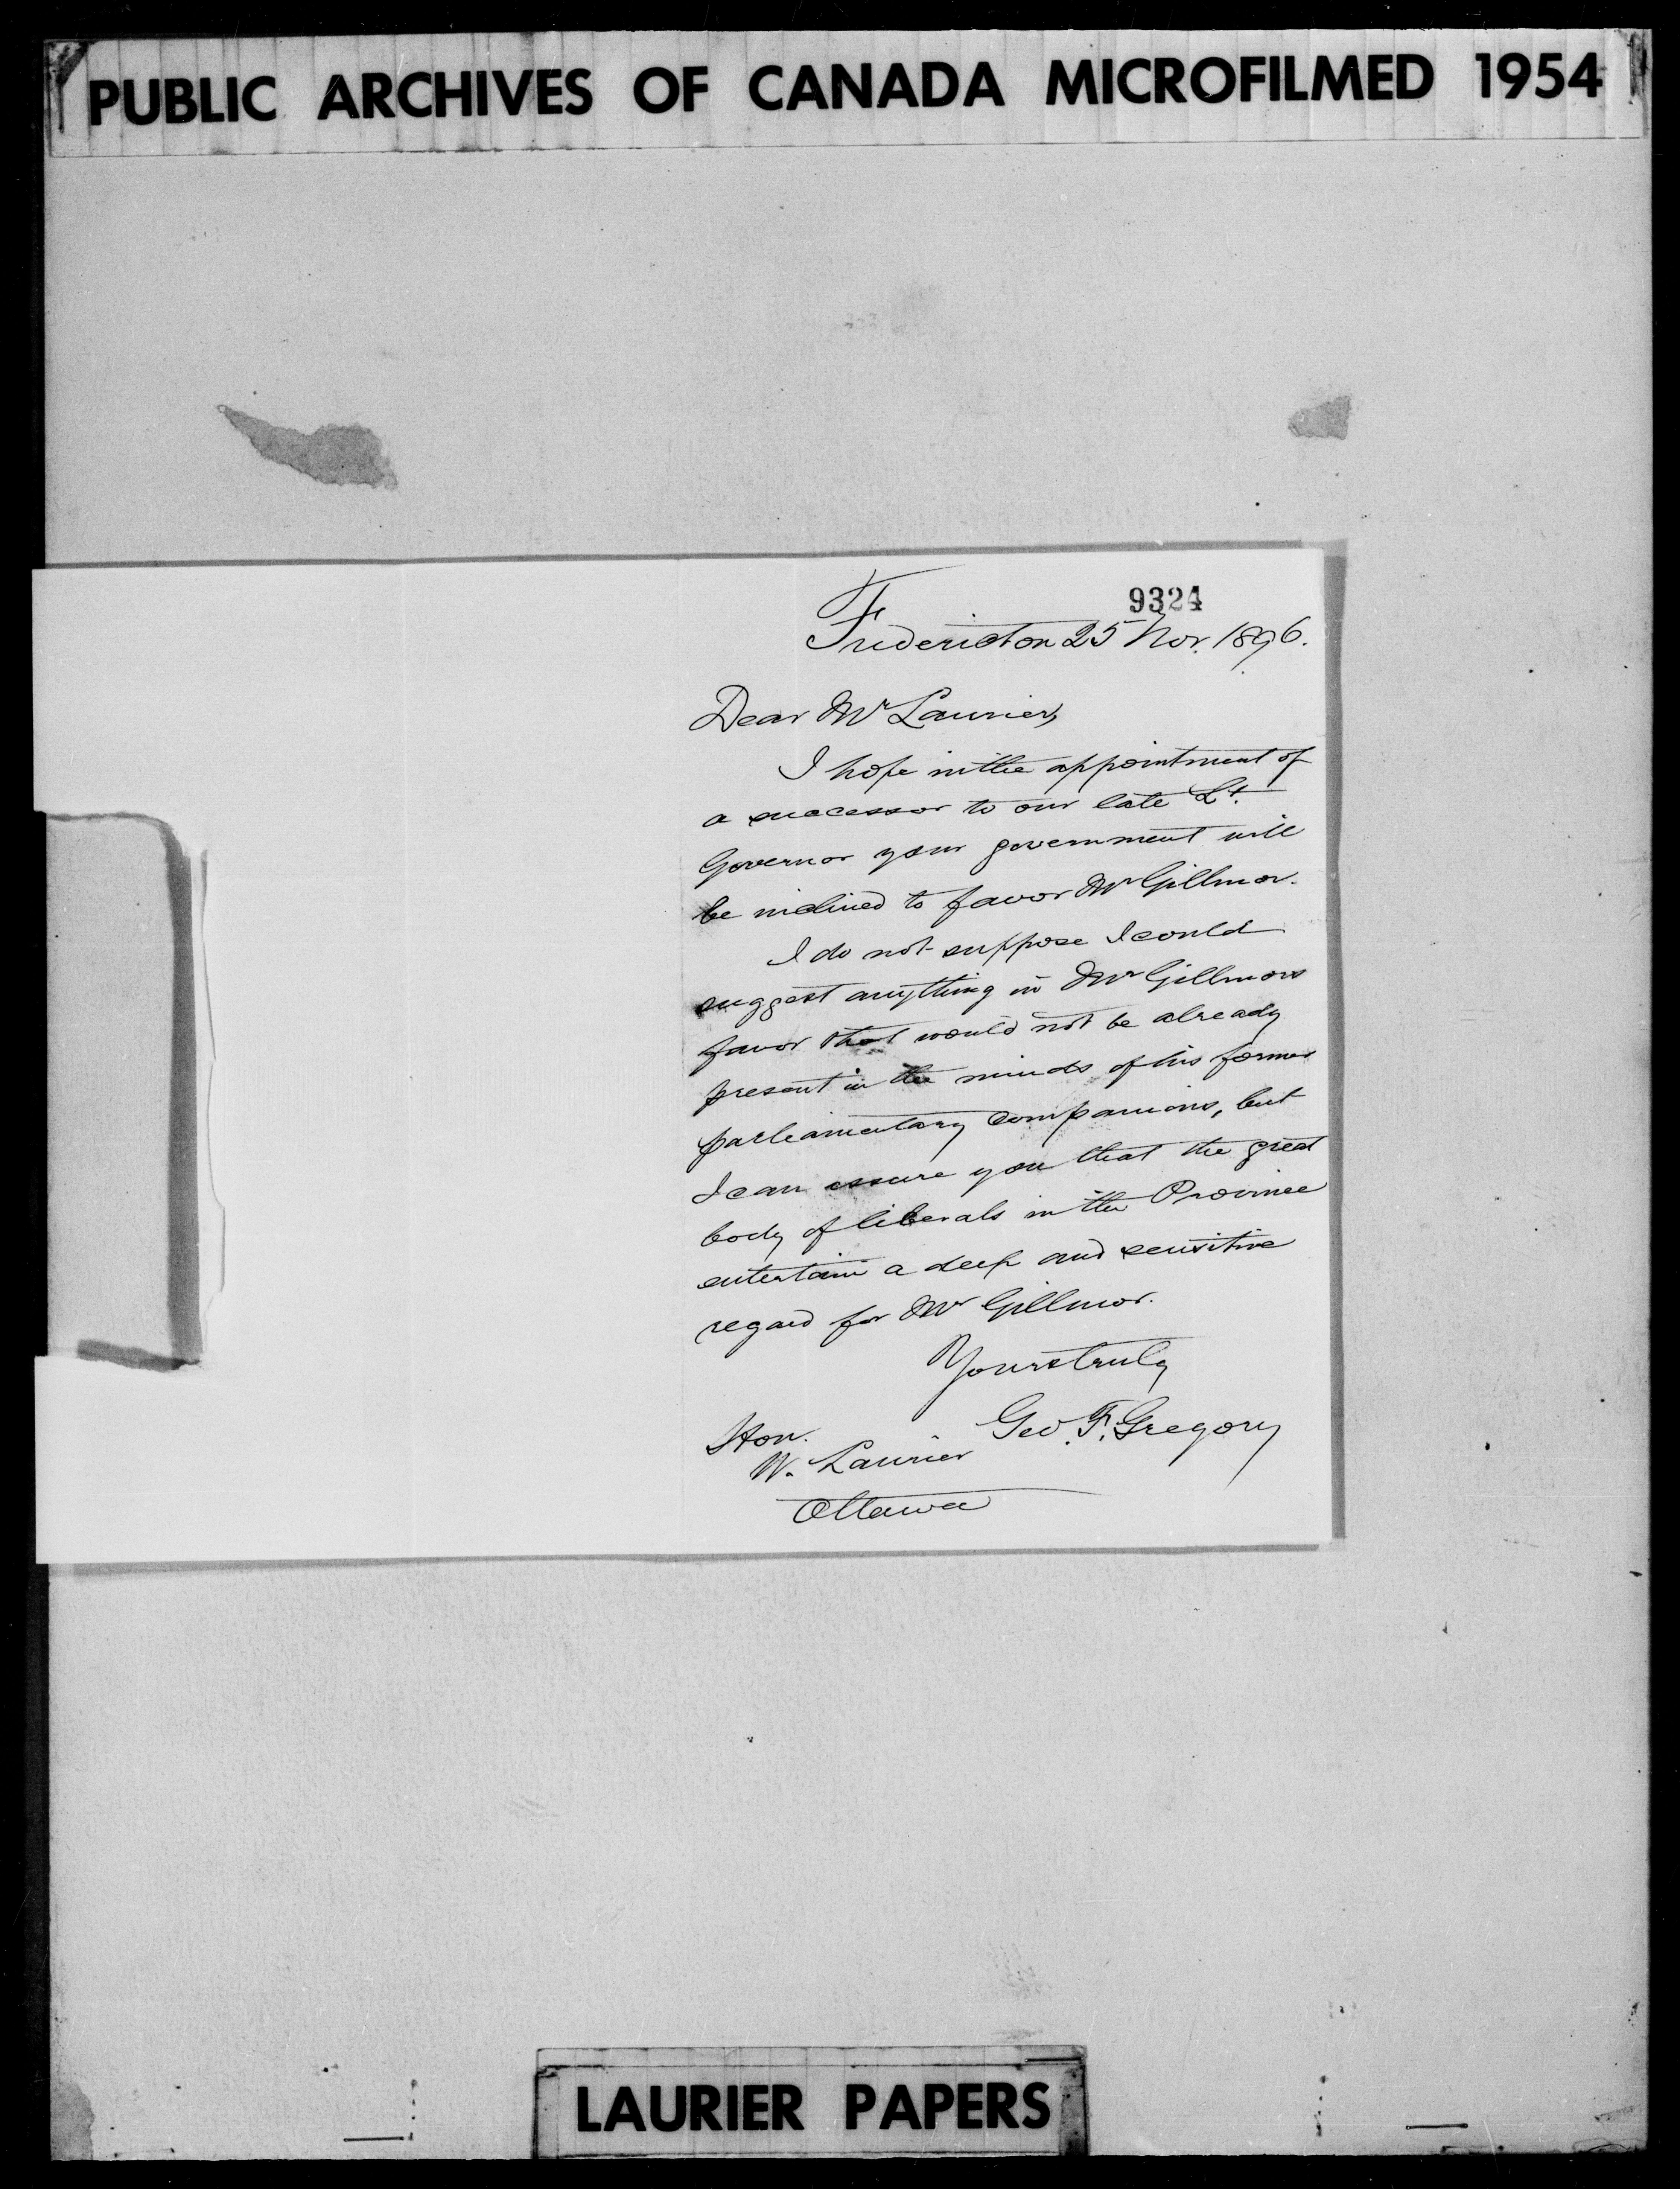 PUBLIC ARCHIVES OF CANADA MICROFILMED 1954
9324
Fredericton 25 Nov. 1896.
Dear Mr Laurier,
I hope in the appointment of
a successor to our late Lt.
Governor your government will
be inclined to favor Mr Gillmor.
I do not suppose I could
suggest anything in Mr Gillmors
favor that would not be already
present in the minds of his former
parliamentary companions, but
I can assure you that the great
body of liberals in the Province
entertain a deep and sensitive
regard for Mr Gillmor.
Yours truly
Geo. F. Gregory
Hon.
W. Laurier
Ottawa
LAURIER PAPERS